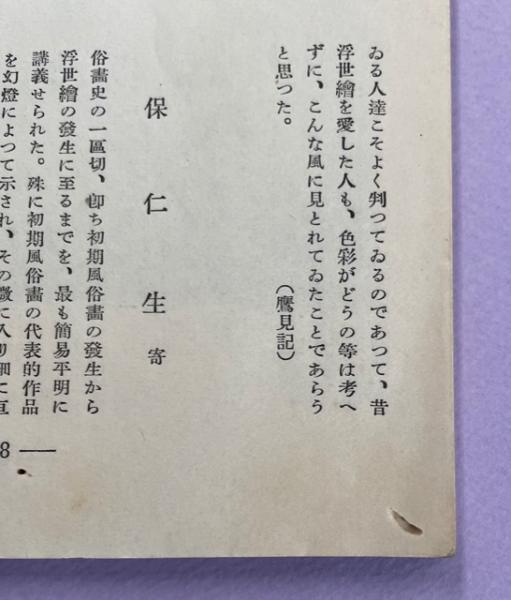 ゐる人達こそよく判つてゐるのであつて、昔
浮世繪を愛した人も、色彩がどうの等は考へ
ずに、こんな風に見とれてゐたことであらう
と思つた。
（鷹見記）
保仁生寄
俗畫史の一區切、卽ち初期風俗畫の發生から
浮世繪の發生に至るまでを、最も簡易平明に
講義せられた。殊に初期風俗畫の代表的作品
を幻燈によつて示され、その微に入り細に亘
8 —